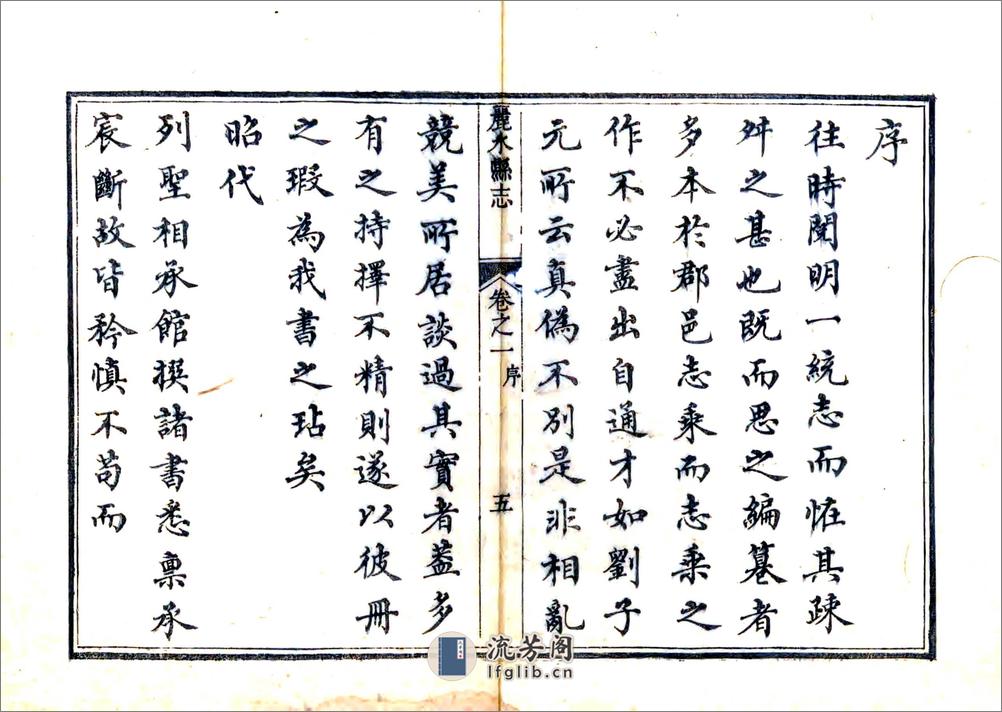 序
往時閱明一統志而恠其疎
舛之甚也既而思之編纂者
多本於郡邑志乘而志乘之
作不必盡出自通才如劉子
元所云真偽不別是非相亂
麗水縣志
卷之一
序
五
競美所居談過其實者蓋多
有之持擇不精則遂以彼冊
之瑕為我書之玷矣
昭代
列聖相承館撰諸書悉禀承
宸斷故皆矜慎不苟而
流芳阁
lfglib.cn